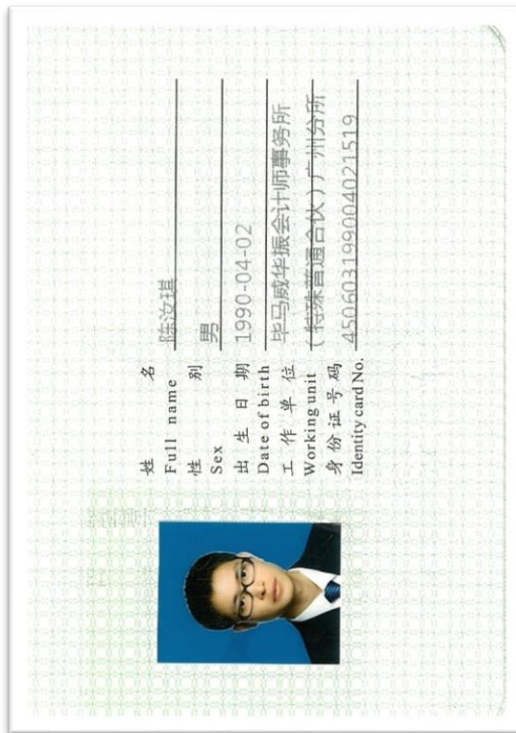 姓名 陈汝琪
Full name
性别 男
Sex
出生日期 1990-04-02
Date of birth
工作单位 毕马威华振会计师事务所
Working unit （特殊普通合伙）广州分所
身份证号码 450603199004021519
Identity card No.